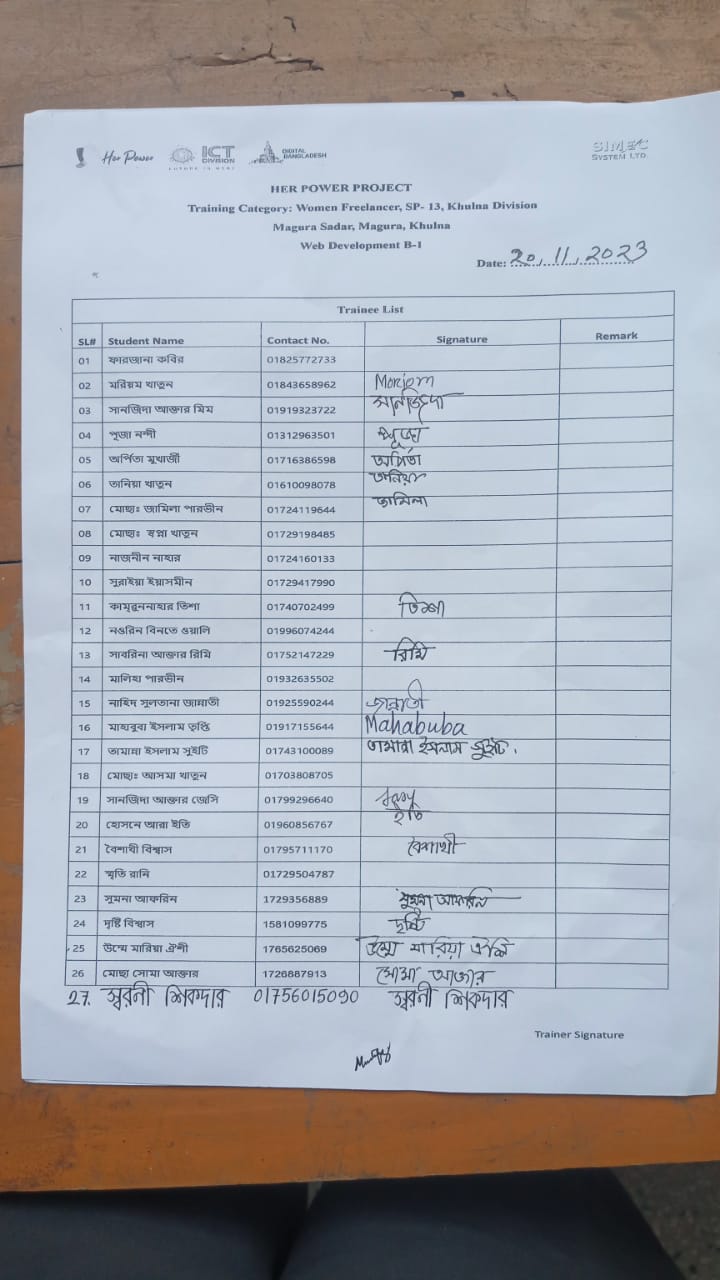 Her Power
ICT DIVISION
FUTURE IS HERE
DIGITAL BANGLADESH
SIMEC SYSTEM LTD.
HER POWER PROJECT
Training Category: Women Freelancer, SP- 13, Khulna Division
Magura Sadar, Magura, Khulna
Web Development B-1
Date: 20.11.2023
Trainee List
SL# Student Name Contact No. Signature Remark
01 ফারজানা কবির 01825772733
02 মরিয়ম খাতুন 01843658962 Moriom
03 সানজিদা আক্তার মিম 01919323722 সানজিদা
04 পূজা নন্দী 01312963501 পূজা
05 অর্পিতা মুখার্জী 01716386598 অর্পিতা
06 তানিয়া খাতুন 01610098078 তানিয়া
07 মোছাঃ জামিলা পারভীন 01724119644 জামিলা
08 মোছাঃ স্বপ্না খাতুন 01729198485
09 নাজনীন নাহার 01724160133
10 সুরাইয়া ইয়াসমীন 01729417990
11 কামরুননাহার তিশা 01740702499 তিশা
12 নওরিন বিনতে ওয়ালি 01996074244
13 সাবরিনা আক্তার রিমি 01752147229 রিমি
14 মালিহা পারভীন 01932635502
15 নাহিদ সুলতানা জান্নাতী 01925590244 জান্নাতী
16 মাহাবুবা ইসলাম তৃপ্তি 01917155644 Mahabuba
17 তামান্না ইসলাম সুইটি 01743100089 তামান্না ইসলাম সুইটি.
18 মোছাঃ আসমা খাতুন 01703808705
19 সানজিদা আক্তার জেসি 01799296640
20 হোসনে আরা ইতি 01960856767 ইতি
21 বৈশাখী বিশ্বাস 01795711170 বৈশাখী
22 স্মৃতি রানি 01729504787
23 সুমনা আফরিন 1729356889 সুমনা আফরিন
24 দৃষ্টি বিশ্বাস 1581099775 দৃষ্টি
25 উম্মে মারিয়া ঐশী 1765625069 উম্মে মারিয়া ঐশি
26 মোছা সোমা আক্তার 1726887913 সোমা আক্তার
27. স্বরনী শিকদার 01756015090 স্বরনী শিকদার
Trainer Signature